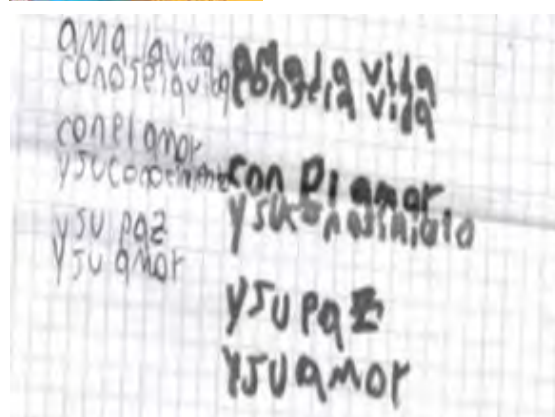 ama la vida
conose la vida
con el amor
y su conosimi
y su paz
y su amor
ama la vida
conose la vida
con El amor
y su conosimiuto
y su paz
y su amor